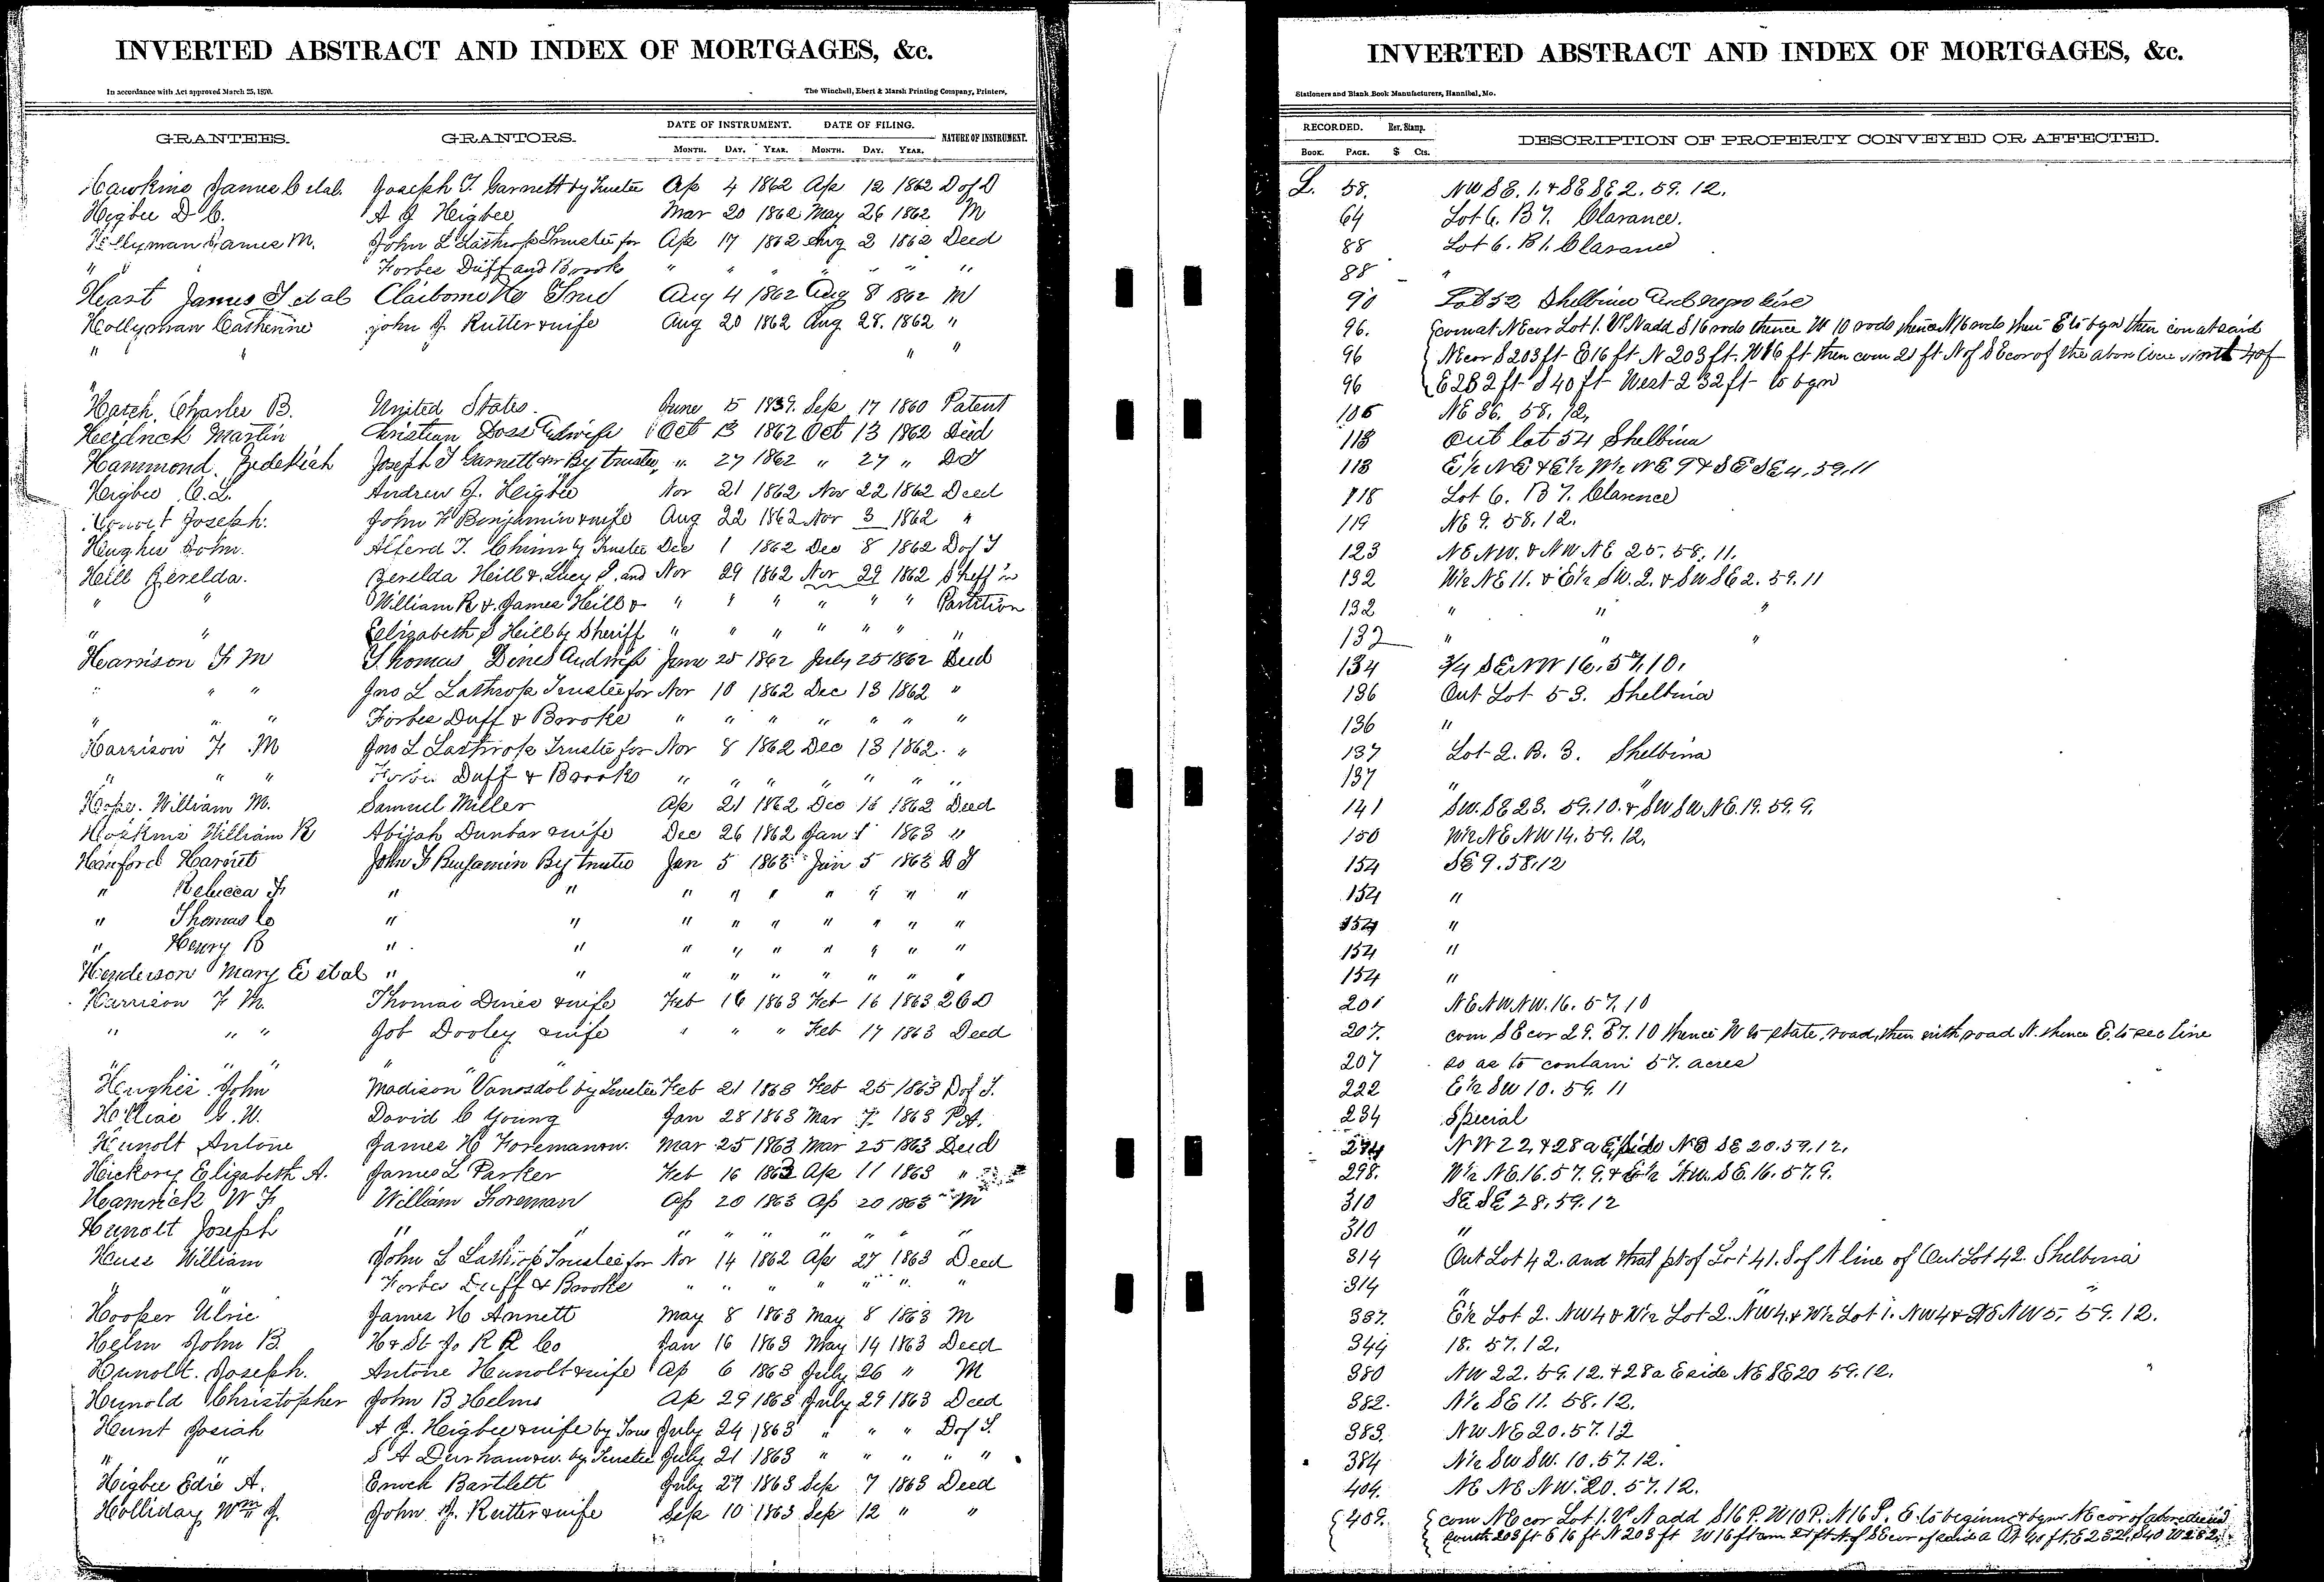 INVERTED ABSTRACT AND INDEX OF MORTGAGES, &c.
In accordance with Act approved March 25, 1870.
The Winchell, Ebert & Marsh Printing Company, Printers,
GRANTEES. GRANTORS. DATE OF INSTRUMENT. DATE OF FILING. NATURE OF INSTRUMENT.
MONTH. DAY. YEAR. MONTH. DAY. YEAR.
Hawkins James C etal. Joseph T. Garnett by Trustee Ap 4 1862 Ap 12 1862 D of D
Higbee D C. A J Higbee Mar 20 1862 May 26 1862 M
Hollyman James M. John L Lathrop Trustee for Ap 17 1862 Aug 2 1862 Deed
" Forbes Duff and Brooks " " " " " " "
Heart James T et al Claiborne Aug 4 1862 Aug 8 1862 M
Hollyman Catherine john J. Rutter & wife Aug 20 1862 Aug 28. 1862 "
" " " "
Hatch, Charles B. United States. June 5 1839. Sep 17 1860 Patent
Heidrick Martin Christian Doss And wife Oct 13 1862 Oct 13 1862 Deed
Hammond, Zedekiah Joseph T Garnett By trustee, " 27 1862 " 27 " D T
Higbee C. L. Andrew J. Higbee Nov 21 1862 Nov 22 1862 Deed
Joseph. John F Benjamin & wife Aug 22 1862 Nov 3 1862 "
Hughes John. Alferd T. Chinn by Trustee Dec 1 1862 Dec 8 1862 D of T
Hill Zerelda. Zerelda Hill & Lucy S. and Nov 29 1862 Nov 29 1862 Sheff in
" " William R & James Hill & " " " " " " Partition
" " Elizabeth S Hill by Sheriff " " " " " " "
Harrison F M Thomas Dines And wife June 25 1862 July 25 1862 Deed
" " " Jno L Lathrop Trustee for Nov 10 1862 Dec 13 1862 "
" " " Forbes Duff & Brooks " " " " " " "
Harrison F M Jno L Lathrop Trustee for Nov 8 1862 Dec 13 1862. "
" " " Forbes Duff & Brooks " " " " " " "
Hope. William M. Samuel Miller Ap 21 1862 Dec 15 1862 Deed
Hoskins William R Abijah Dunbar & wife Dec 26 1862 Jan 1 1863 "
Hanford Harriet John F Benjamin By trustee Jan 5 1863 Jan 5 1863 D T
" Rebecca F. " " " " " " " " "
" Thomas C " " " " " " " " "
" Henry B " " " " " " " " "
Henderson Mary E et al " " " " " " " " "
Harrison F M. Thomas Dines & wife Feb 16 1863 Feb 16 1863 2 G D
" " " Job Dooley & wife " " " Feb 17 1863 Deed
" " " "
Hughes John Madison Vanosdol by Trustee Feb 21 1863 Feb 25 1863 D of T.
G. W. David C Young Jan 28 1863 Mar 7. 1863 P A.
Hunolt Antone James H Foreman Mar 25 1863 Mar 25 1863 Deed
Hickory Elizabeth A. James L Parker Feb 16 1863 Ap 11 1863 "
Hamrick W F William Foreman Ap 20 1863 Ap 20 1863 M
Hunolt Joseph " " " " " " " " "
Huss William John L Lathrop Trustee for Nov 14 1862 Ap 27 1863 Deed
" Forbes Duff & Brooks " " " " " " "
Hooper Ulric James H Annett May 8 1863 May 8 1863 M
Helm John B. H & St Jo R R Co Jan 16 1863 May 14 1863 Deed
Hunolt. Joseph. Antone Hunolt & wife Ap 6 1863 July 26 " M
Hunold Christopher John B Helms Ap 29 1863 July 29 1863 Deed
Hunt Josiah A J. Higbee & wife by Trus July 24 1863 " " " D of T.
" " S A Durham by Trustee July 21 1863 " " " " "
Higbee Edie A. Enoch Bartlett July 27 1863 Sep 7 1863 Deed
Holliday Wm J. John J. Rutter & wife Sep 10 1863 Sep 12 " "
INVERTED ABSTRACT AND INDEX OF MORTGAGES, &c.
Stationers and Blank Book Manufacturers, Hannibal, Mo.
RECORDED. Rev. Stamp. DESCRIPTION OF PROPERTY CONVEYED OR AFFECTED.
BOOK. PAGE. $ Cts.
L. 58. NW SE. 1. & SE SE 2. 59. 12.
64 Lot 6. B 7. Clarance.
88 Lot 6. B 1. Clarance
88 "
90 Lot 52 Shelbina
96. com at NE cor Lot 1. S 16 rods thence W 10 rods thence N 16 rods then E to bgn then com at said
96 NE cor S 203 ft E 16 ft N 203 ft. W 16 ft then com 21 ft N of SE cor of the above
96 E 232 ft S 40 ft West 232 ft to bgn
106 NE 36. 58. 12,
113 Out lot 54 Shelbina
113 E½ NE & E½ W½ NE 9 & SE SE 4, 59, 11
118 Lot 6. B 7. Clarence
119 NE 9. 58. 12.
123 NE NW. & NW NE 25. 58. 11.
132 W½ NE 11. & E½ SW. 2. & SW SE 2. 59. 11
132 " " "
132 " " "
134 ¾ SE NW 16. 57. 10.
136 Out Lot 53. Shelbina
136 "
137 Lot 2. B. 3. Shelbina
137 " "
141 SW. SE 23. 59. 10. & SW SW NE. 19. 59. 9.
150 W½ NE NW 14. 59. 12,
154 SE 9. 58. 12
154 "
154 "
154 "
154 "
201 NE NW NW. 16. 57. 10
207. com SE cor 29. 57. 10 thence W to state, road, then with road N. thence E. to sec line
207 so as to contain 57. acres
222 E½ SW 10. 59. 11
234 Special
294 NW 22, & 28 a E side NE SE 20. 59. 12.
298. W½ NE. 16. 57. 9. & E½ NW. SE. 16. 57. 9.
310 SE SE 28. 59. 12
310 "
314 Out Lot 42. and that pt of Lot 41. S of N line of Out Lot 42. Shelbina
314 " "
337. E½ Lot 2. NW 4 & W½ Lot 2. NW 4. & W½ Lot 1. NW 4 & NE NW 5. 59. 12.
344 18. 57. 12.
380 NW 22. 59. 12. & 28 a E side NE SE 20 59. 12.
382. N½ SE 11. 58. 12.
383. NW NE 20. 57. 12
384 N½ SW SW. 10. 57. 12.
404. NE NE NW. 20. 57. 12.
409. com NE cor Lot 1. S 16 P. W 10 P. N 16 P. E. to beginning & bgn NE cor of
south 203 ft E 16 ft N 203 ft W 16 ft com 21 ft N. of SE cor of